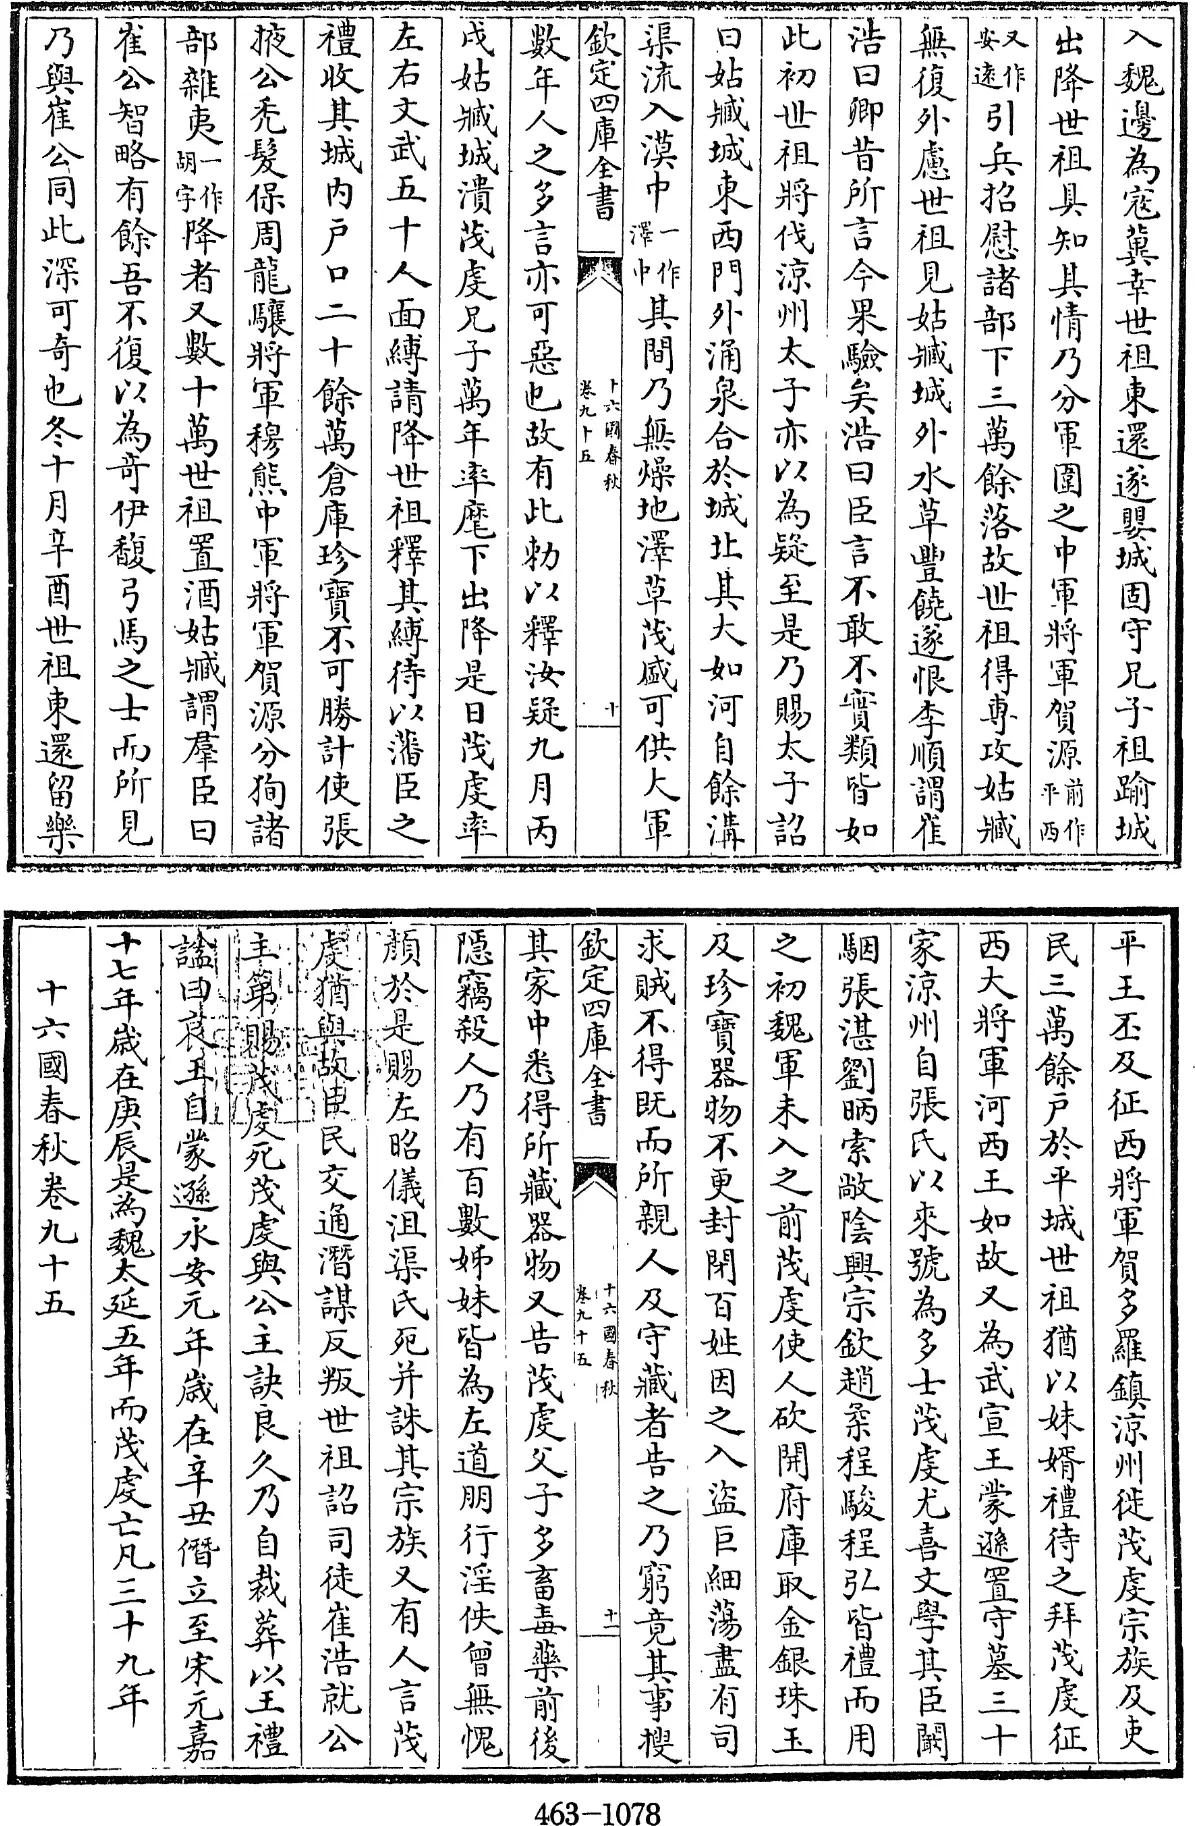 入魏邊為寇冀幸世祖東還遂嬰城固守兄子祖踰城
出降世祖具知其情乃分軍圍之中軍將軍賀源前作平西
又作安遠引兵招慰諸部下三萬餘落故世祖得專攻姑臧
無復外慮世祖見姑臧城外水草豐饒遂恨李順謂崔
浩曰卿昔所言今果驗矣浩曰臣言不敢不實類皆如
此初世祖將伐涼州太子亦以為疑至是乃賜太子詔
曰姑臧城東西門外涌泉合於城北其大如河自餘溝
渠流入漠中一作澤中其間乃無燥地澤草茂盛可供大軍
欽定四庫全書
十六國春秋
卷九十五
十
數年人之多言亦可惡也故有此勑以釋汝疑九月丙
戌姑臧城潰茂虔兄子萬年率麾下出降是日茂虔率
左右文武五十人面縛請降世祖釋其縛待以藩臣之
禮收其城內戶口二十餘萬倉庫珍寶不可勝計使張
掖公禿髮保周龍驤將軍穆熊中軍將軍賀源分徇諸
部雜夷一作胡字降者又數十萬世祖置酒姑臧謂羣臣曰
崔公智略有餘吾不復以為奇伊馥弓馬之士而所見
乃與崔公同此深可奇也冬十月辛酉世祖東還留樂
平王丕及征西將軍賀多羅鎮涼州徙茂虔宗族及吏
民三萬餘戶於平城世祖猶以妹婿禮待之拜茂虔征
西大將軍河西王如故又為武宣王蒙遜置守墓三十
家涼州自張氏以來號為多士茂虔尤喜文學其臣闞
駰張湛劉昞索敞陰興宗欽趙柔程駿程弘皆禮而用
之初魏軍未入之前茂虔使人砍開府庫取金銀珠玉
及珍寶器物不更封閉百姓因之入盜巨細蕩盡有司
求賊不得既而所親人及守藏者告之乃窮竟其事搜
欽定四庫全書
十六國春秋
卷九十五
十一
其家中悉得所藏器物又告茂虔父子多畜毒藥前後
隱竊殺人乃有百數姊妹皆為左道朋行淫佚曾無愧
顏於是賜左昭儀沮渠氏死并誅其宗族又有人言茂
虔猶與故臣民交通潛謀反叛世祖詔司徒崔浩就公
主第賜茂虔死茂虔與公主訣良久乃自裁葬以王禮
謚曰哀王自蒙遜永安元年歲在辛丑僭立至宋元嘉
十七年歲在庚辰是為魏太延五年而茂虔亡凡三十九年
十六國春秋卷九十五
463-1078